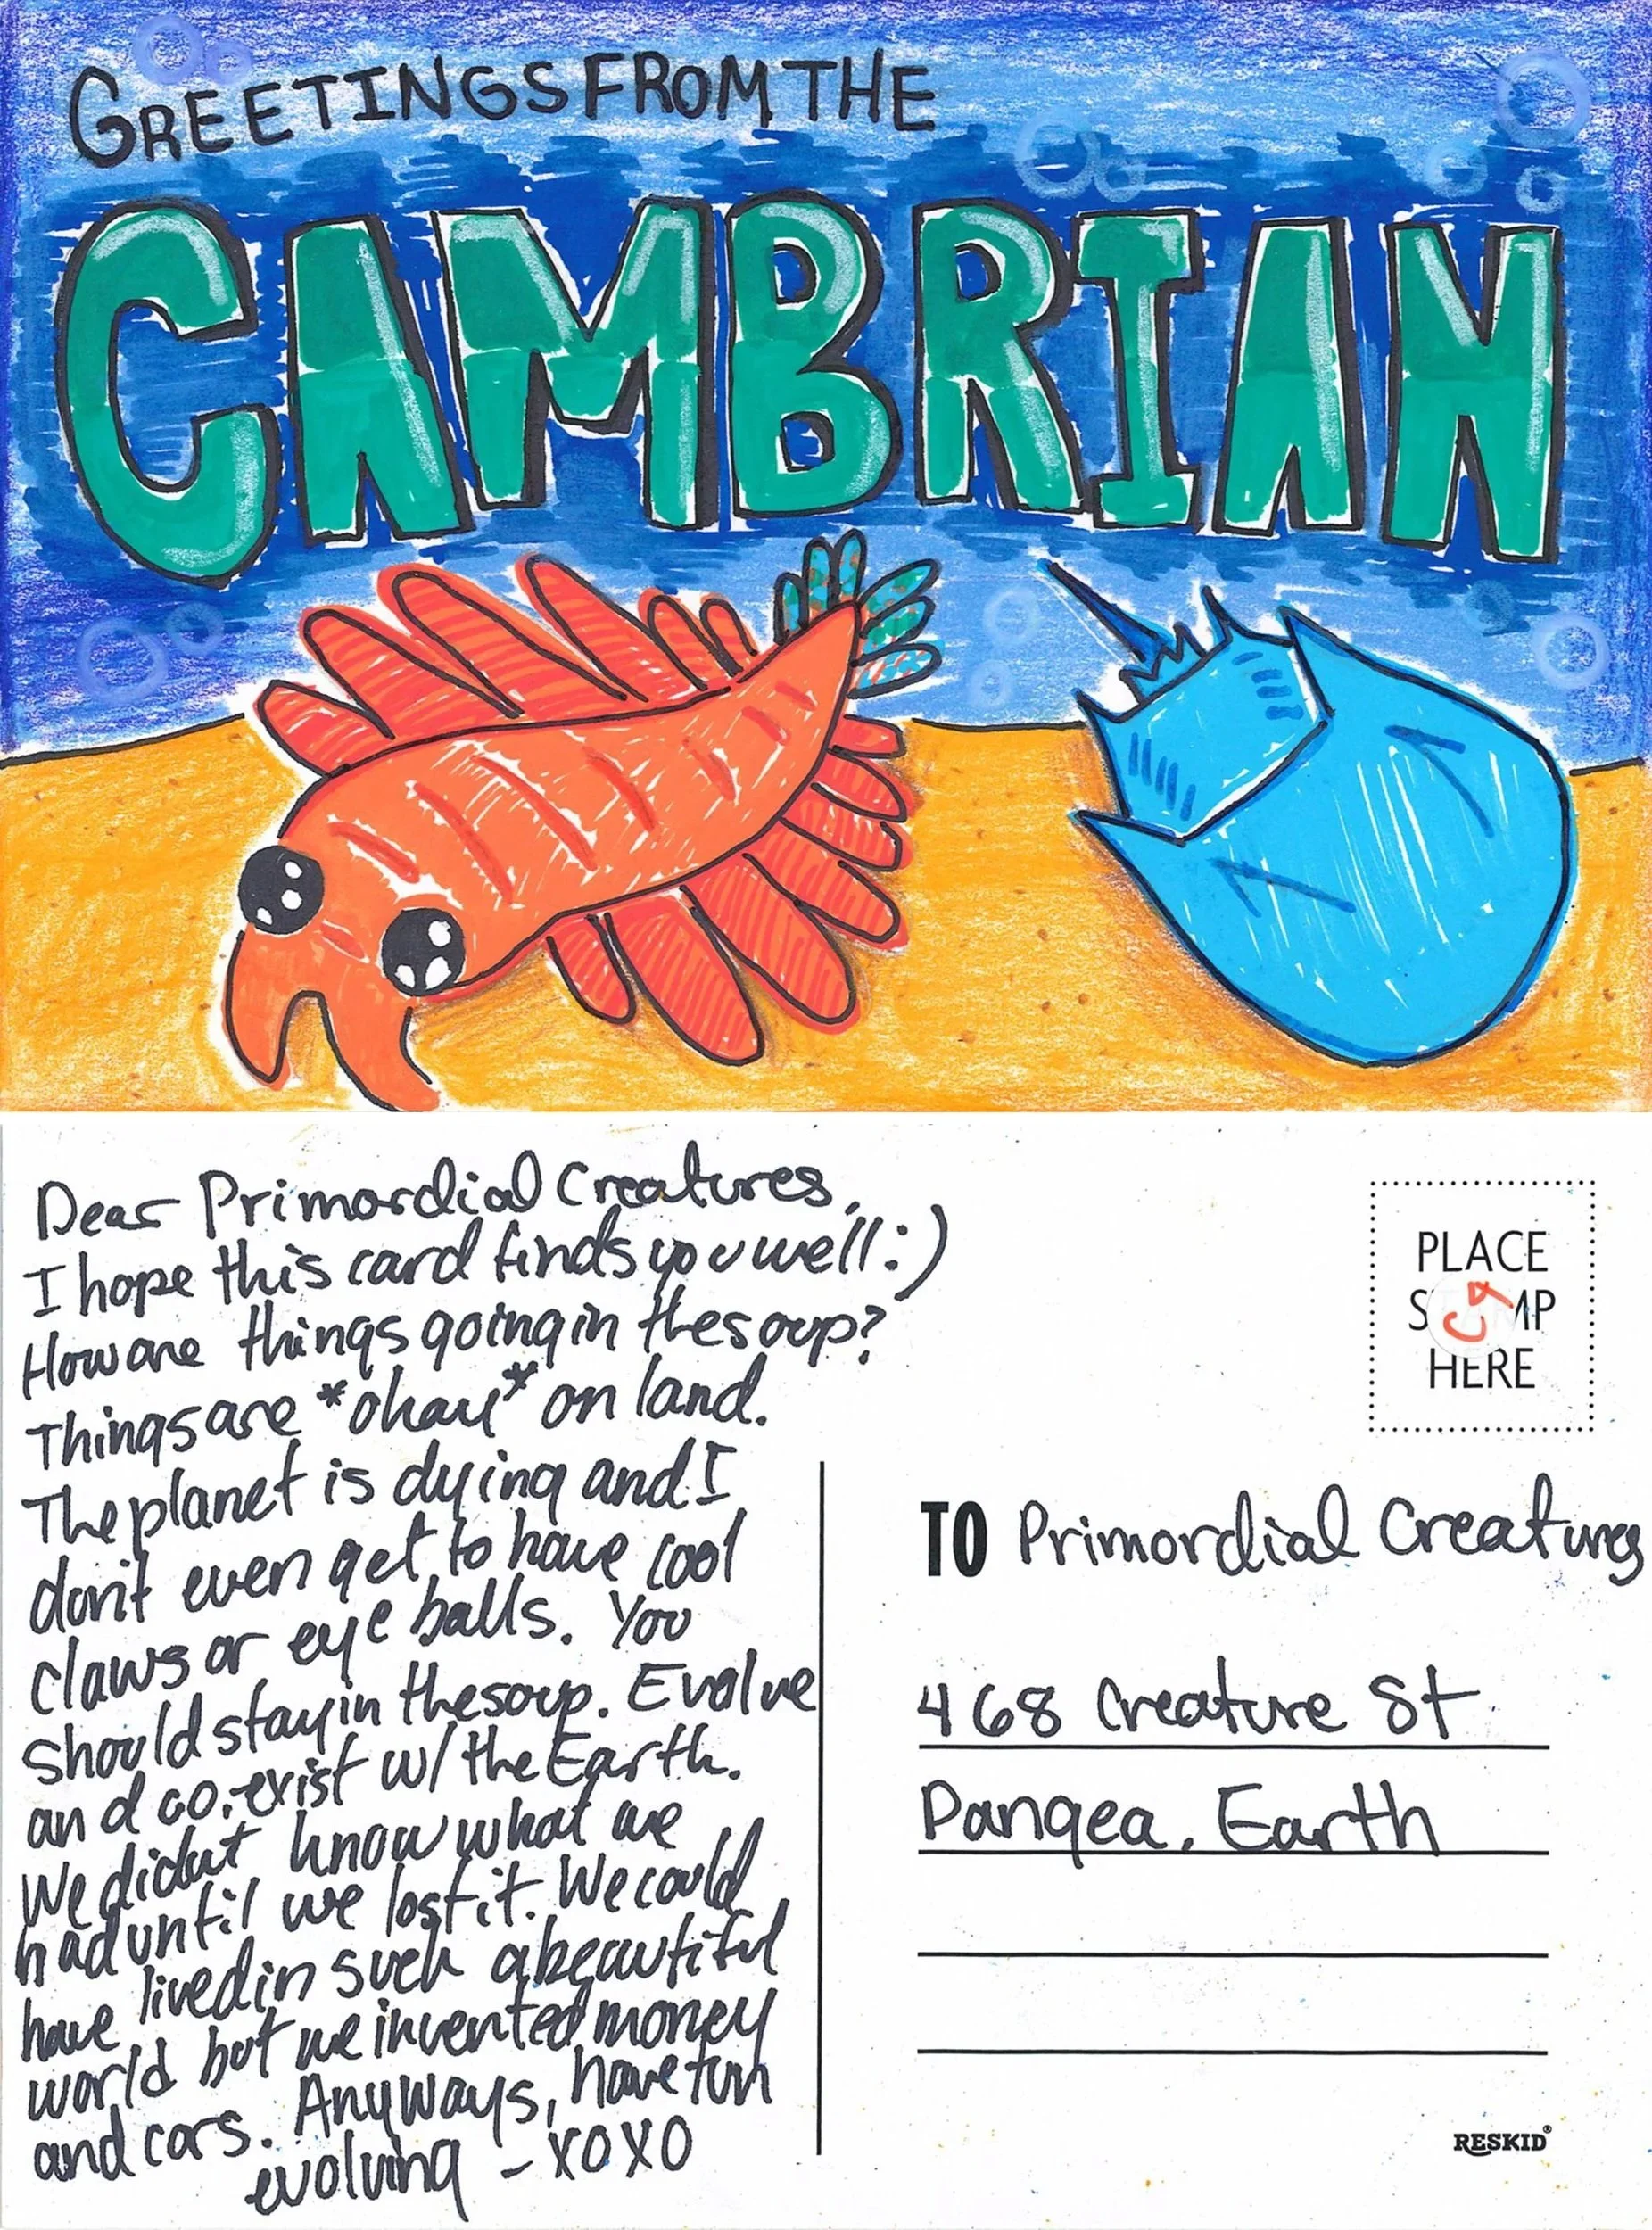 GREETINGS FROM THE
CAMBRIAN
Dear Primordial Creatures,
I hope this card finds you well :)
How are things going in the soup?
Things are *okay* on land.
The planet is dying and I
don't even get to have cool
claws or eye balls. You
should stay in the soup. Evolve
and co-exist w/ the Earth.
We didnt know what we
had until we lost it. We could
have lived in such a beautiful
world but we invented money
and cars. Anyways, have fun
evolving - XOXO
PLACE
STAMP
HERE
TO Primordial Creatures
468 Creature St
Pangea, Earth
RESKID®